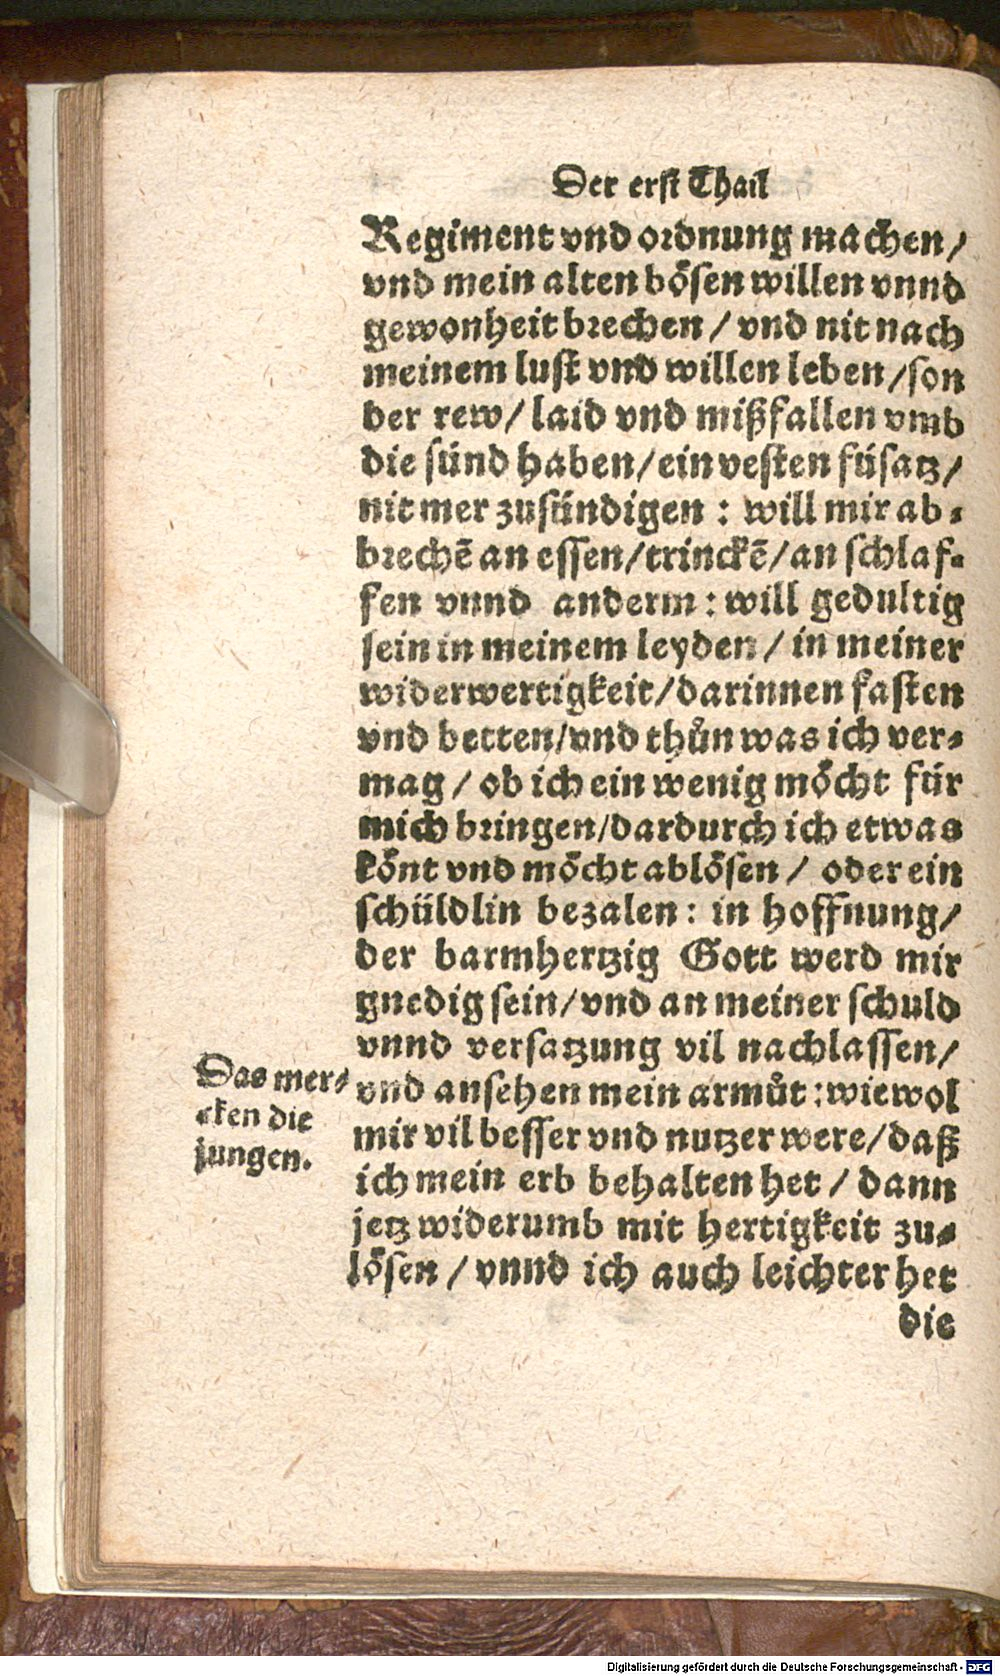 Der erst Thail
Regiment vnd ordnung machen/
vnd mein alten bösen willen vnnd
gewonheit brechen / vnd nit nach
meinem lust vnd willen leben/son
der rew/ laid vnd mißfallen vmb
die sünd haben/ein vesten füsatz/
nit mer zusündigen : will mir ab-
brechẽ an essen/trinckẽ/an schlaf-
fen vnnd anderm : will gedultig
sein in meinem leyden / in meiner
widerwertigkeit/darinnen fasten
vnd betten/vnd thůn was ich ver-
mag / ob ich ein wenig möcht für
mich bringen/dardurch ich etwas
könt vnd möcht ablösen / oder ein
schüldlin bezalen : in hoffnung/
der barmhertzig Gott werd mir
gnedig sein/vnd an meiner schuld
vnnd versatzung vil nachlassen/
vnd ansehen mein armůt : wiewol
mir vil besser vnd nutzer were/daß
ich mein erb behalten het / dann
jetz widerumb mit hertigkeit zu-
lösen / vnnd ich auch leichter het
die
Das mer-
cken die
jungen.
Digitalisierung gefördert durch die Deutsche Forschungsgemeinschaft - DFG